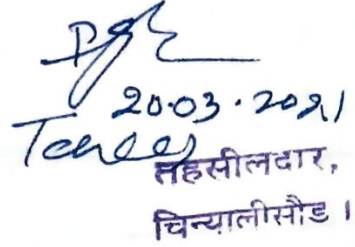 20.03.2021
तहसीलदार,
चिन्यालीसौड।